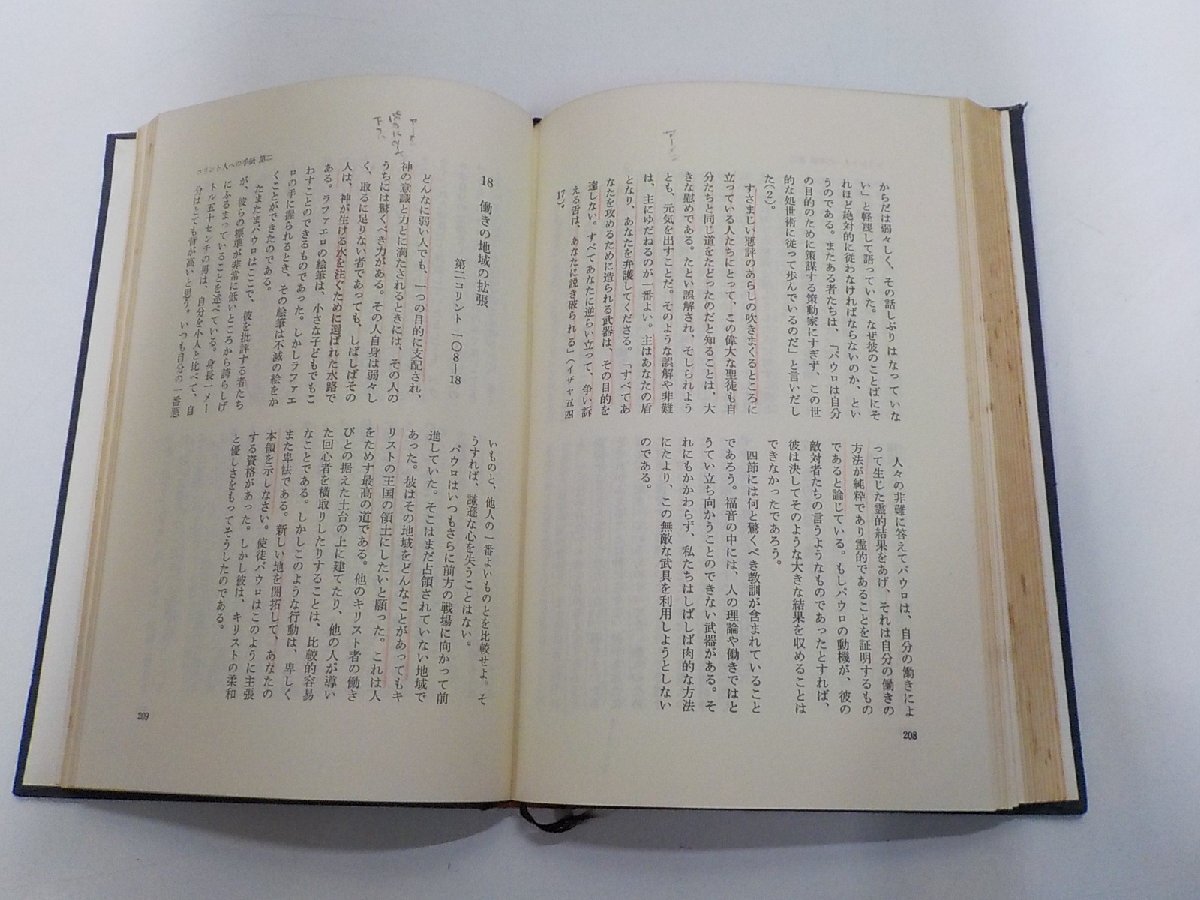 からだは弱々しく、その話しぶりはなっていな
い」と軽蔑して語っていた。なぜ彼のことばにそ
れほど絶対的に従わなければならないのか、とい
うのである。またある者たちは、「パウロは自分
の目的のために策謀する策動家にすぎず、この世
的な処世術に従って歩んでいるのだ」と言いだし
た(2)。
すさまじい悪評のあらしの吹きまくるところに
立っている人たちにとって、この偉大な聖徒も自
分たちと同じ道をたどったのだと知ることは、大
きな慰めである。たとい誤解され、そしられよう
とも、元気を出すことだ。そのような誤解や非難
は、主にゆだねるのが一番よい。主はあなたの盾
となり、あなたを弁護してくださる。「すべてあ
なたを攻めるために造られる武器は、その目的を
達しない。すべてあなたに逆らい立って、争い訴
える者は、あなたに説き破られる」(イザヤ五四
17)。
人々の非難に答えてパウロは、自分の働きによ
って生じた霊的結果をあげ、それは自分の働きの
方法が純粋であり霊的であることを証明するもの
であると論じている。もしパウロの動機が、彼の
敵対者たちの言うようなものであったとすれば、
彼は決してそのような大きな結果を収めることは
できなかったであろう。
四節には何と驚くべき教訓が含まれていること
であろう。福音の中には、人の理論や働きではと
うてい立ち向かうことのできない武器がある。そ
れにもかかわらず、私たちはしばしば肉的な方法
にたより、この無敵な武具を利用しようとしない
のである。
208
アーメン
コリント人への手紙 第二
18 働きの地域の拡張
第二コリント 一〇8―18
どんなに弱い人でも、一つの目的に支配され、
神の意識と力とに満たされるときには、その人の
うちには驚くべき力がある。その人自身は弱々し
く、取るに足りない者であっても、しばしばその
人は、神がいける水を注ぐために選ばれた水路で
ある。ラファエロの絵筆は、小さな子どもでもこ
わすことのできるものであった。しかしラファエ
ロの手に握られるとき、その絵筆は不滅の絵をか
くことができたのである。
たまたまパウロはここで、彼を批評する者たち
が、彼らの標準が非常に低いところから誇らしげ
にふるまっていることを述べている。身長一メー
トル五十センチの男は、自分を小人と比べて、自
分はとても背が高いと思う。いつも自分の一番悪
いものと、他人の一番よいものと比較せよ。そ
うすれば、謙遜な心を失うことはない。
パウロはいつもさらに前方の戦場に向かって前
進していた。そこはまだ占領されていない地域で
あった。彼はその地域をどんなことがあってもキ
リストの王国の領土にしたいと願った。これは人
をためす最高の道である。他のキリスト者の働き
びとの据えた土台の上に建てたり、他の人が導い
た回心者を横取りしたりすることは、比較的容易
なことである。しかしこのような行動は、卑しく
また卑怯である。新しい地を開拓して、あなたの
本領を示しなさい。使徒パウロはこのように主張
する資格があった。しかし彼は、キリストの柔和
と優しさをもってそうしたのである。
209